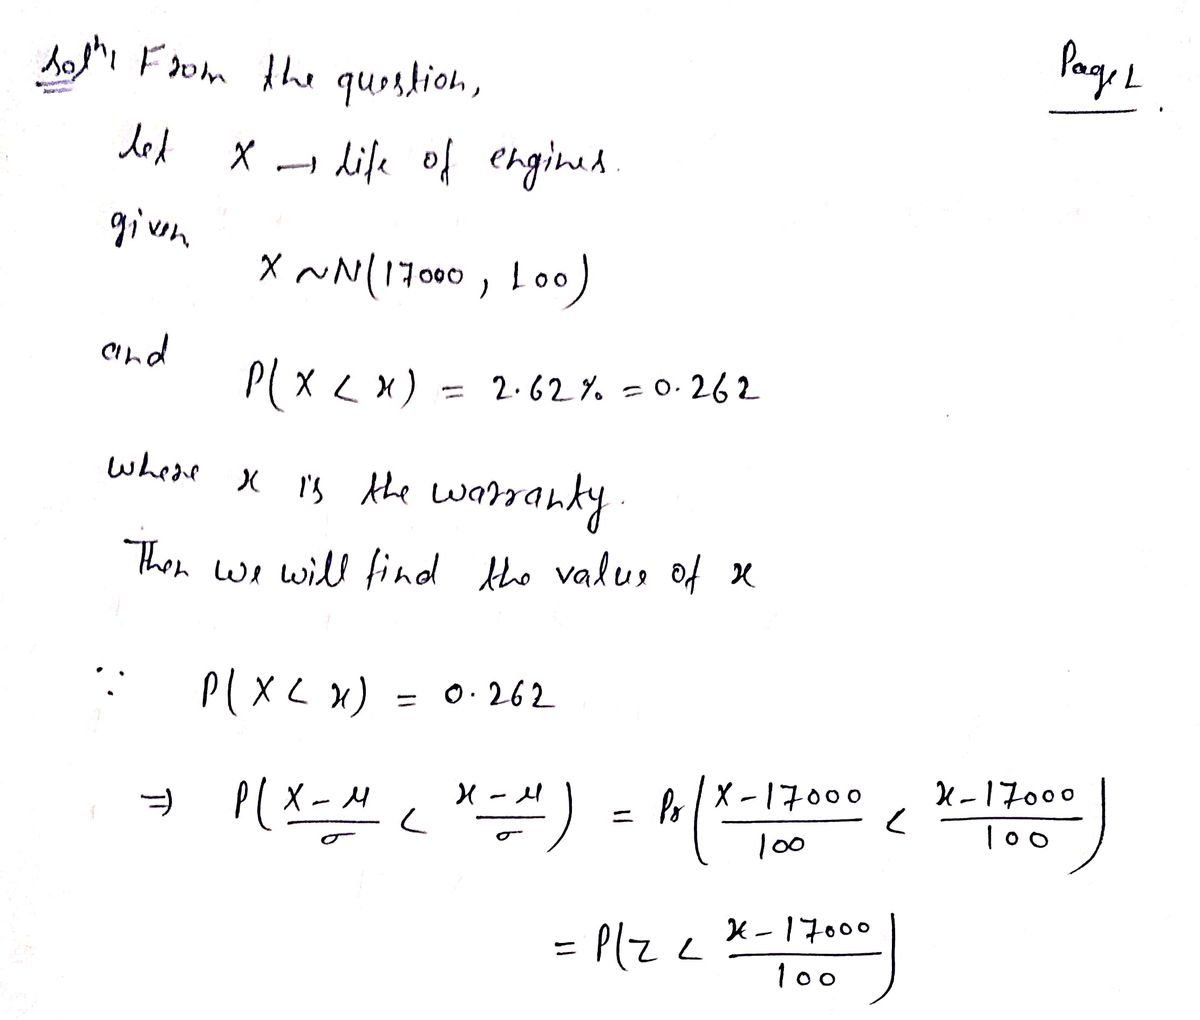 Solⁿ: From the question,
Page 1.
let X → life of engines.
given
X ~ N(17000, 100)
and
P(X < x) = 2.62% = 0.262
where x is the warranty.
Then we will find the value of x
∵ P(X < x) = 0.262
⇒ P(X-μ/σ < x-μ/σ) = Pr(X-17000/100 < x-17000/100)
= P(Z < x-17000/100)